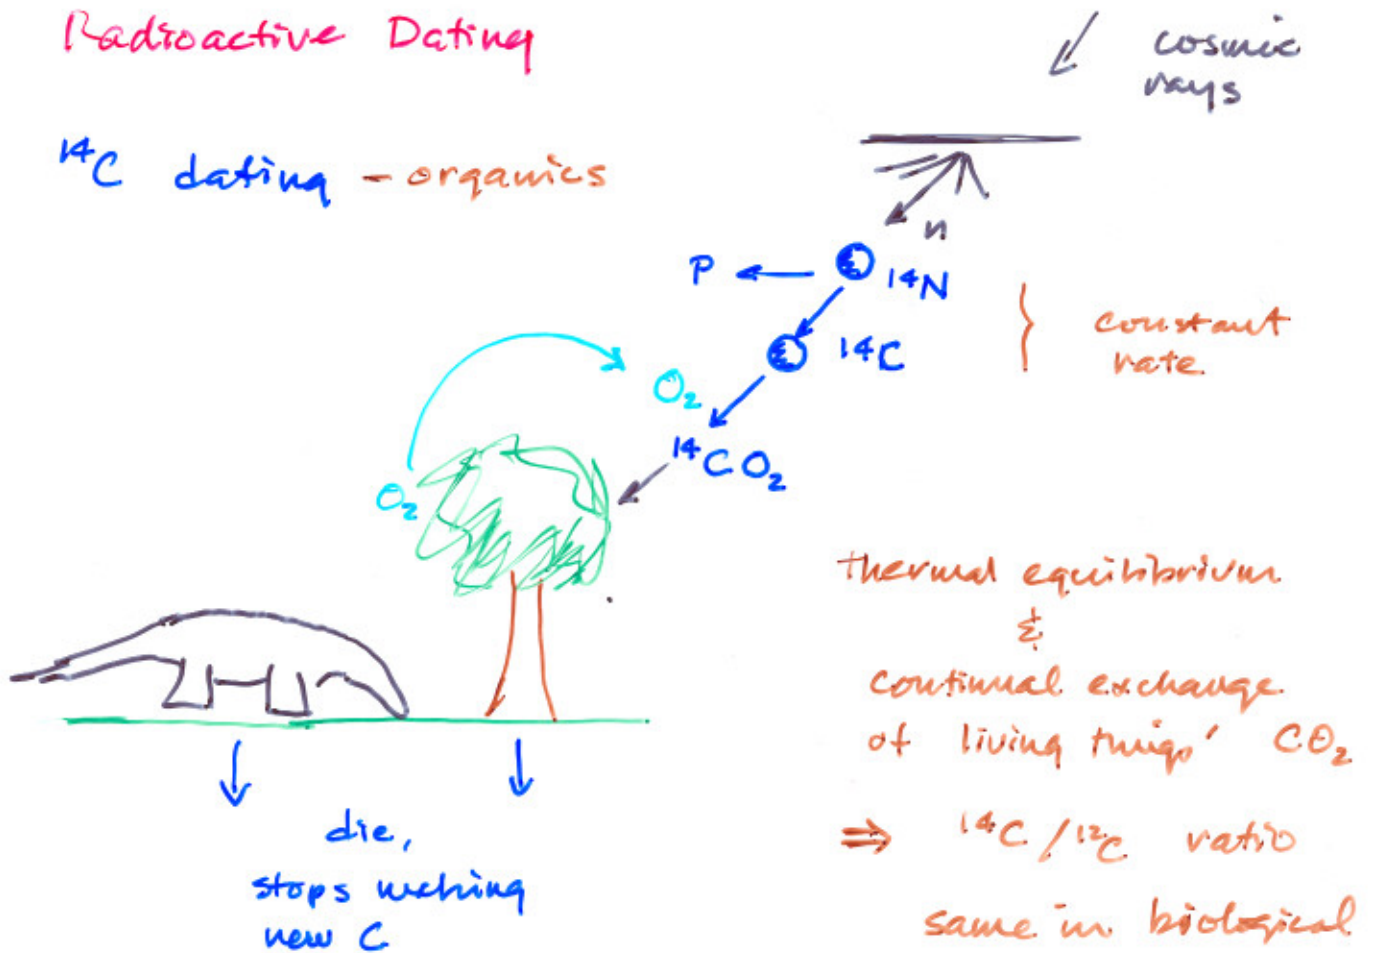 Radioactive Dating
cosmic
rays
¹⁴C dating - organics
n
P
¹⁴N
¹⁴C
} constant
rate
O₂
¹⁴CO₂
O₂
thermal equilibrium
&
continual exchange
of living things' CO₂
⇒ ¹⁴C/¹²C ratio
same in biological
die,
stops
new C